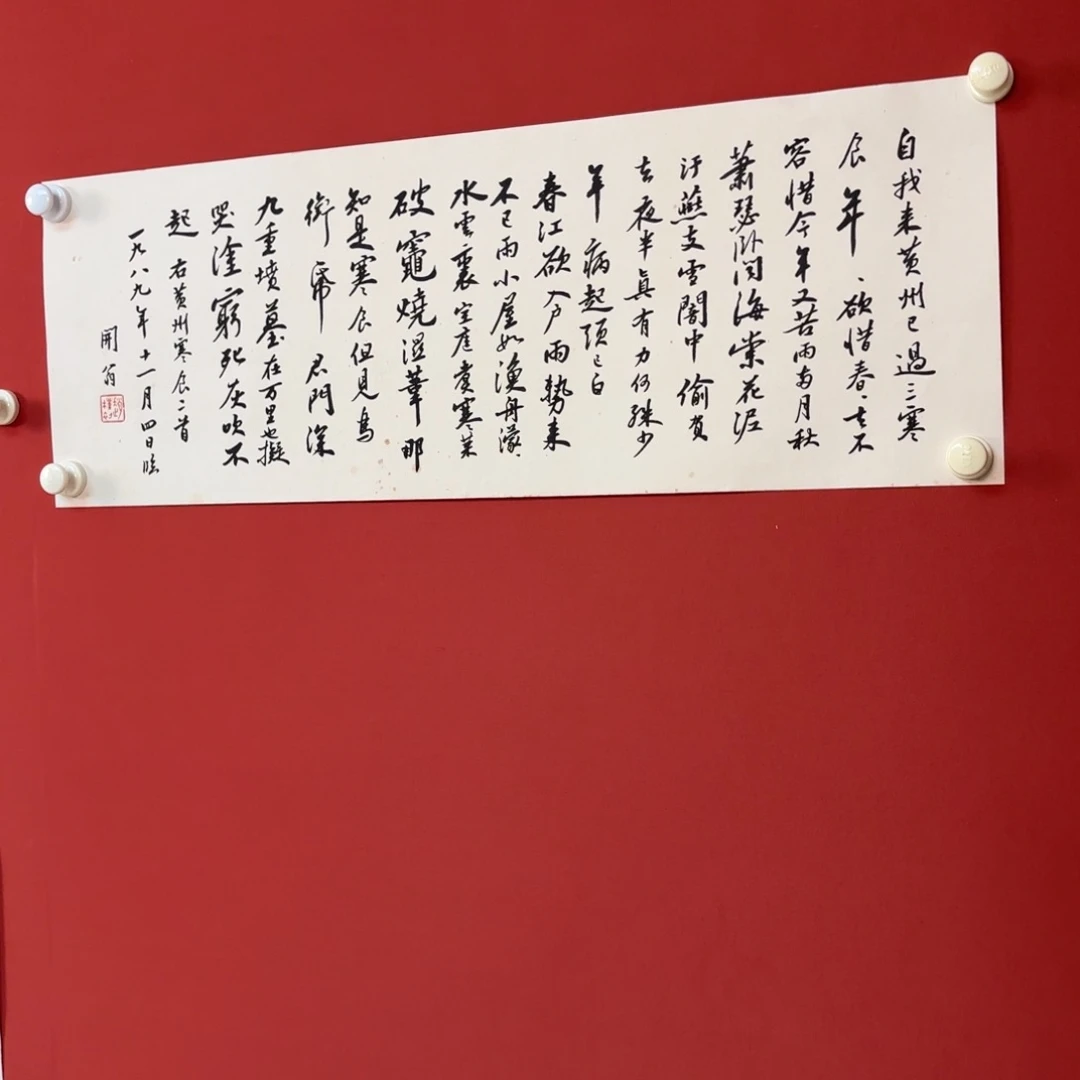 自我来黄州已過三寒
食年、欲惜春、去不
容惜今年又苦雨两月秋
蕭瑟卧闻海棠花泥
汙燕支雪闇中偷負
去夜半真有力何殊少
年病起頭已白
春江欲入户雨勢来
不已雨小屋如漁舟濛
水雲裏空庖煮寒菜
破竈燒湿葦那
知是寒食但見烏
銜帋君門深
九重墳墓在万里也擬
哭塗窮死灰吹不
起 右黄州寒食二首
一九八九年十一月四日临
開翁